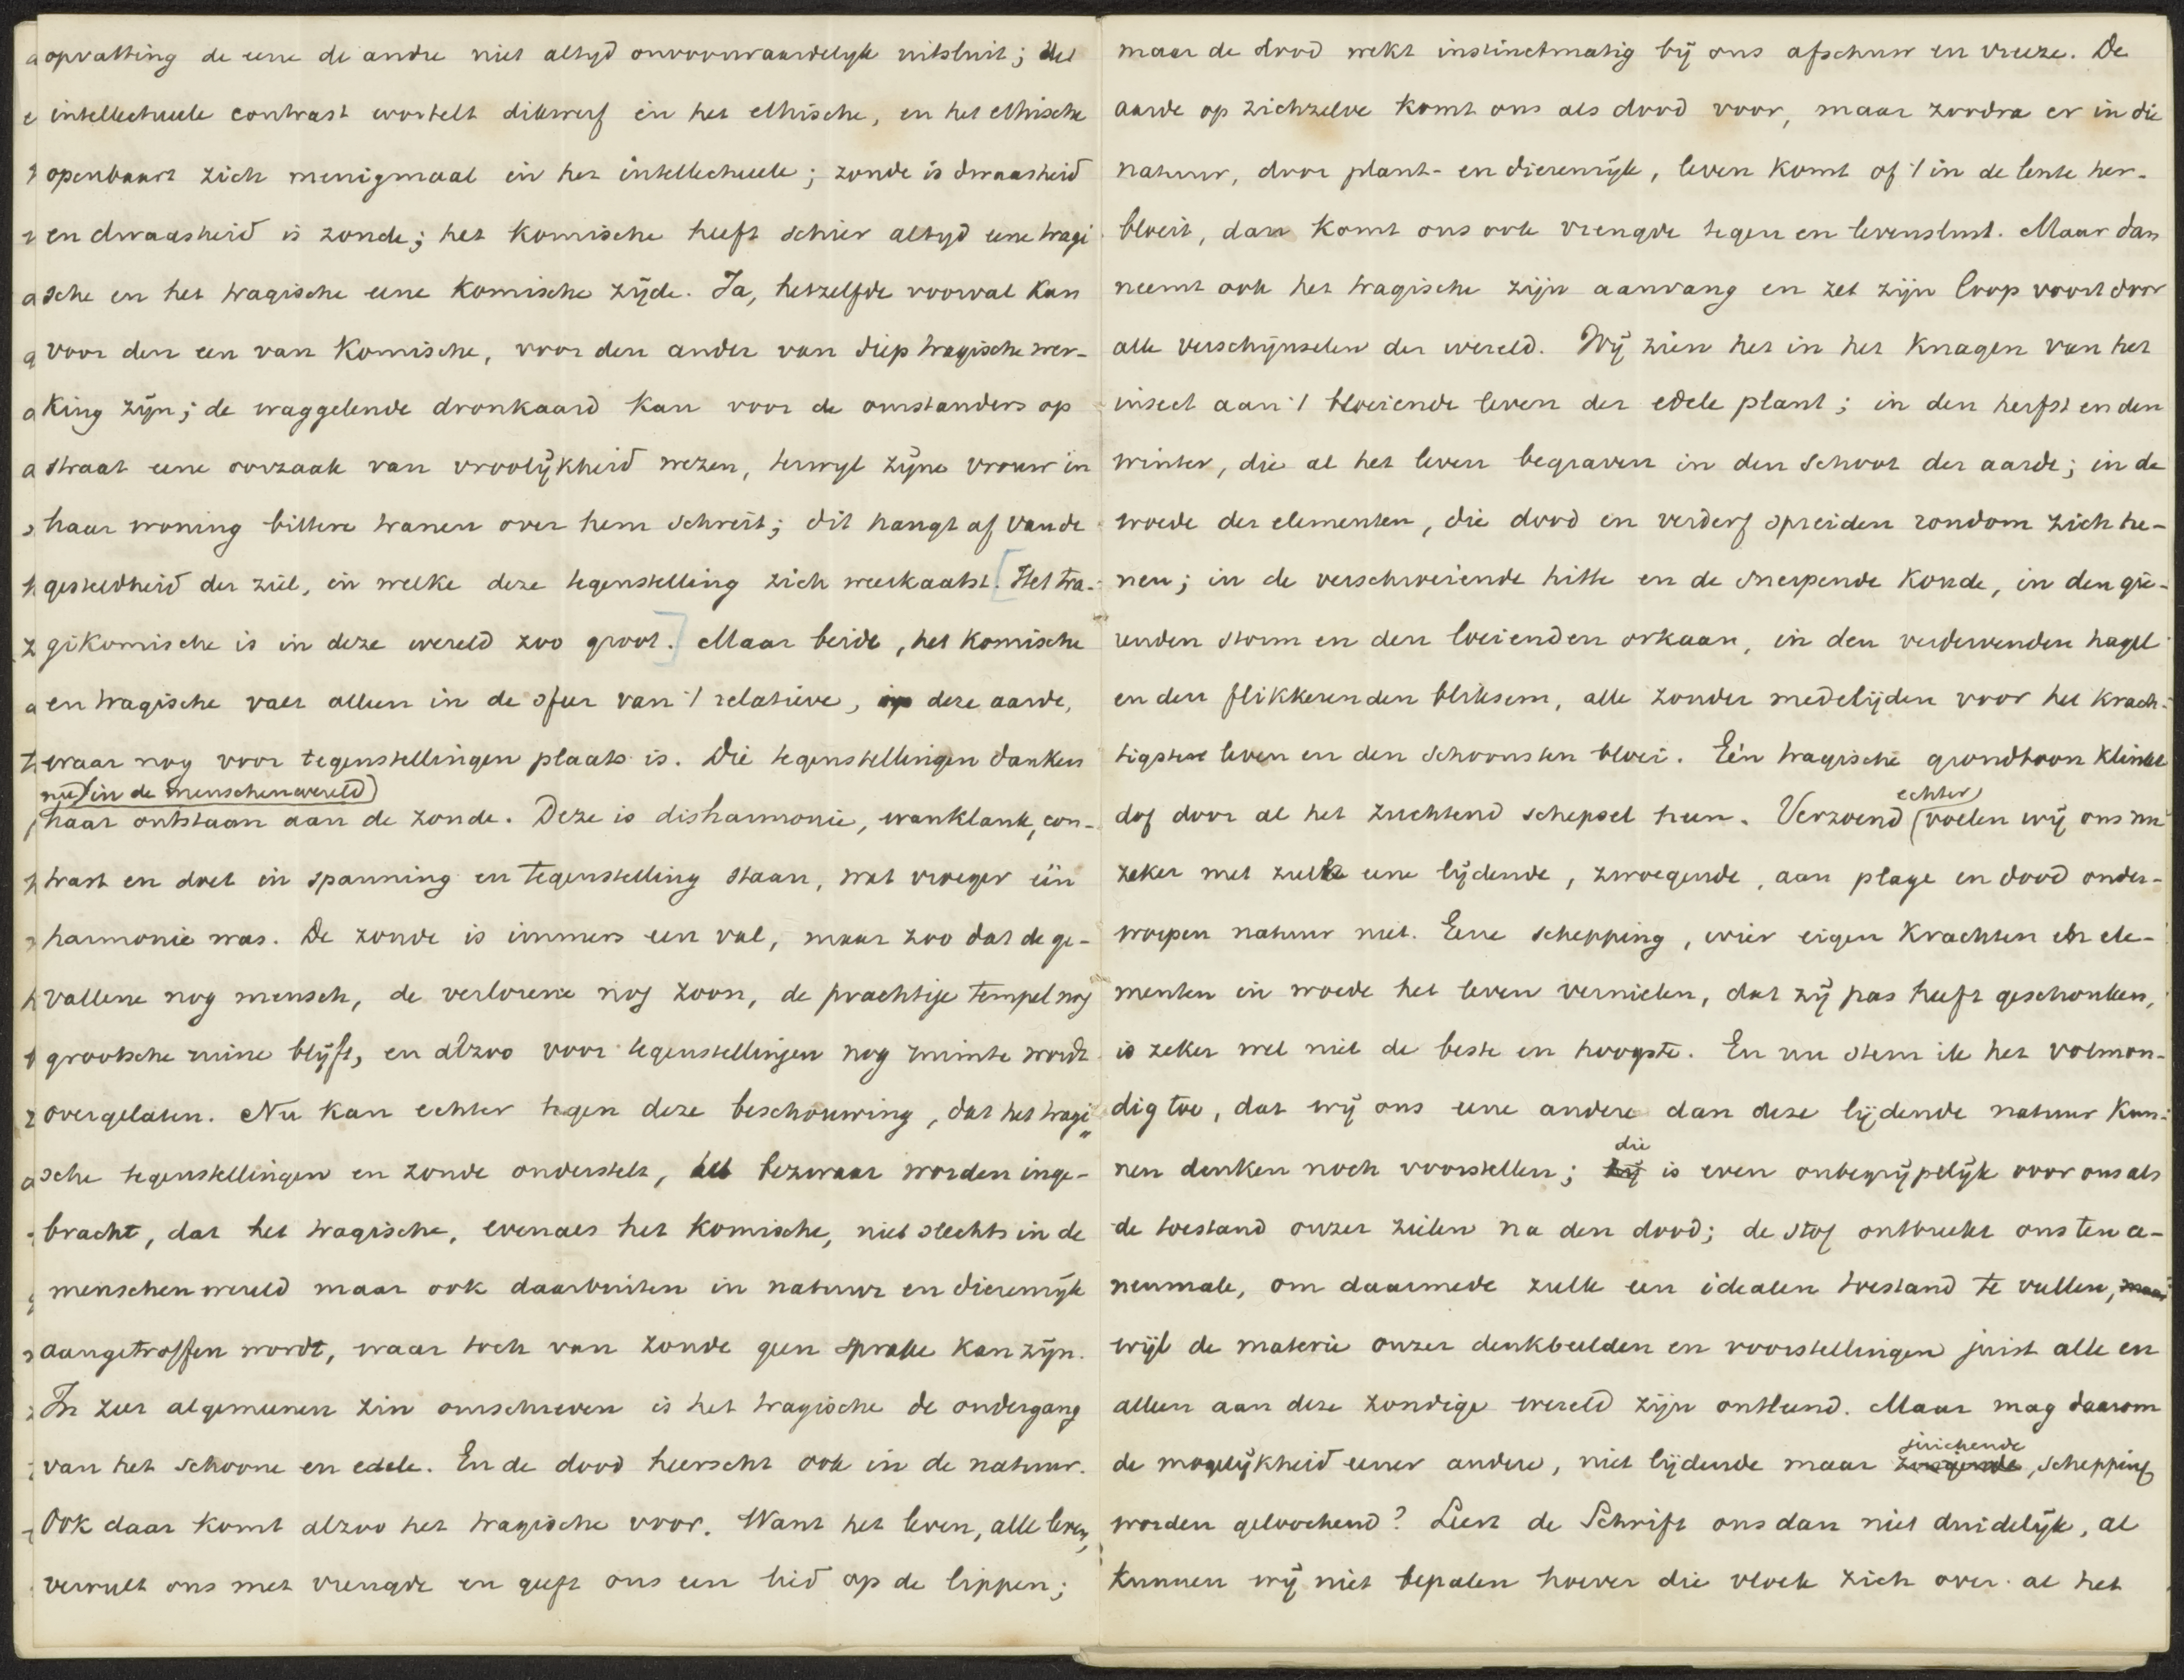 opvatting de eene de andre niet altyd onvoorwaardelyk uitsluit; het
intellectueele contrast wortelt dikwerf in het ethische, en het ethische
openbaart zich menigmaal in het intellectueele; zonde is dwaasheid
en dwaasheid is zonde; het komische heeft schier altyd eene tragi
sche en het tragische eene komische zijde. Ja, hetzelfde voorval kan
voor den een van komische, voor den ander van diep tragische wer-
king zijn; de waggelende dronkaard kan voor de omstanders op
straat eene oorzaak van vroolijkheid wezen, terwyl zijne vrouw in
haar woning bittere tranen over hem schreit; dit hangt af van de
gesteldheid der ziel, in welke deze tegenstelling zich weerkaatst. [Het tra-
gikomische is in deze wereld zoo groot.] Maar beide, het komische
en tragische valt alleen in de sfeer van 't relatieve, op deze aarde,
waar nog voor tegenstellingen plaats is. Die tegenstellingen danken
nu (in de menschenwereld)
haar ontstaan aan de zonde. Deze is disharmonie, wanklank, con-
trast en doet in spanning en tegenstelling staan, wat vroeger één
harmonie was. De zonde is immers een val, maar zoo dat de ge-
vallene nog mensch, de verlorene nog zoon, de prachtige tempel nog
grootsche ruine blijft, en alzoo voor tegenstellingen nog ruimte wordt
overgelaten. Nu kan echter tegen deze beschouwing, dat het tragi„
sche tegenstellingen en zonde onderstelt, het bezwaar worden inge-
bracht, dat het tragische, evenals het komische, niet slechts in de
menschenwereld maar ook daarbuiten in natuur en dierenrijk
aangetroffen wordt, waar toch van zonde geen sprake kan zijn.
In zeer algemeenen zin omschreven is het tragische de ondergang
van het schoone en edele. En de dood heerscht ook in de natuur.
Ook daar komt alzoo het tragische voor. Want het leven, alle leven,
vervult ons met vreugde en geeft ons een lied op de lippen;
maar de dood wekt instinctmatig bij ons afschuw en vreeze. De
aarde op zichzelve komt ons als dood voor, maar zoodra er in die
natuur, door plant- en dierenrijk, leven komt of 't in de lente her-
bloeit, dan komt ons ook vreugde tegen en levenslust. Maar dan
neemt ook het tragische zijn aanvang en zet zijn loop voort door
alle verschijnselen der wereld. Wij zien het in het knagen van het
insect aan 't bloeiende leven der edele plant; in den herfst en den
winter, die al het leven begraven in den schoot der aarde; in de
woede der elementen, die dood en verderf spreiden rondom zich he-
nen; in de verschroeiende hitte en de snerpende koude, in den gie-
renden storm en den loeienden orkaan, in den verdervenden hagel
en den flikkerenden bliksem, alle zonder medelijden voor het krach-
tigste leven en den schoonsten bloei. Eén tragische grondtoon klinkt
echter
dof door al het zuchtend schepsel heen. Verzoend (voelen wij ons nu
zeker met zulke eene lijdende, zwoegende, aan plage en dood onder-
worpen natuur niet. Eene schepping, wier eigen krachten en ele-
menten in woede het leven vernielen, dat zij pas heeft geschonken,
is zeker wel niet de beste en hoogste. En nu stem ik het volmon-
dig toe, dat wij ons eene andere dan deze lijdende natuur kun-
die
nen denken noch voorstellen; zij is even onbegrijpelijk voor ons als
de toestand onzer zielen na den dood; de stof ontbreekt ons ten e-
nenmale, om daarmede zulk een idealen toestand te vullen, maar
wijl de materie onzer denkbeelden en voorstellingen juist alle en
alleen aan deze zondige wereld zijn ontleend. Maar mag daarom
juichende
de mogelijkheid eener andere, niet lijdende maar zwoegende, schepping
worden geloochend? Leert de Schrift ons dan niet duidelijk, al
kunnen wij niet bepalen hoever die vloek zich over al het